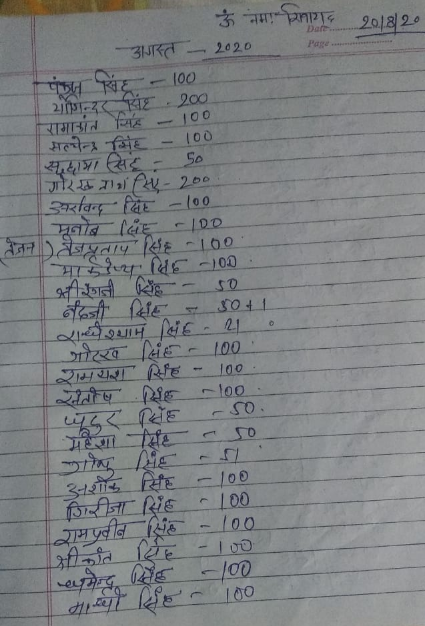 ॐ नमः शिवाय
Date 20/8/20
Page
अगस्त - 2020
पंकज सिंह - 100
योगिन्दर सिंह - 200
रामाकांत सिंह - 100
सत्येन्द्र सिंह - 100
सुदामा सिंह - 50
गोरख नाथ सिंह - 200
अरविन्द सिंह - 100
मनोज सिंह - 100
तेजप्रताप सिंह - 100
मार्कण्डेय सिंह - 100
सिंह - 50
नंदजी सिंह - 50+1
राधेश्याम सिंह - 21
गोरख सिंह - 100
रामयश सिंह - 100
संतोष सिंह - 100
सिंह - 50
महेश सिंह - 50
सिंह - 51
अशोक सिंह - 100
गिरीजा सिंह - 100
रामप्रवीन सिंह - 100
श्रीकांत सिंह - 100
धर्मेन्द्र सिंह - 100
सिंह - 100